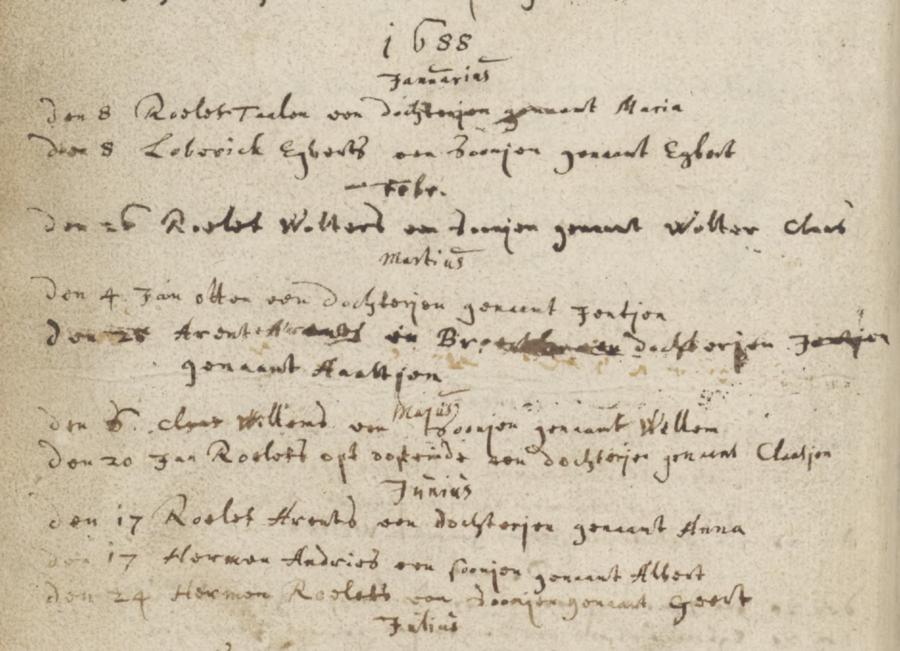 1688
Januarius
den 8 Roelef Taalen een dochterjen genaamt Maria
den 8 Loberich Egberts een soonjen genaamt Egbert
Febr.
den 26 Roelef Wolters een soonjen genaamt Wolter Claas
Martius
den 4 Jan otten een dochterjen genaamt Jentjen
den 28 Arent in dochterjen
genaamt Aaltjen
Majus
den 6. Claas Willems een soonjen genaamt Willem
den 20 Jan Roelefs opt oosteinde een dochterjen genaamt Claasjen
Junius
den 17 Roelef Arents een dochterjen genaamt Anna
den 17 Hermen Andries een soonjen genaamt Albert
den 24 Hermen Roelefs een soonjen genaamt Geert
Julius